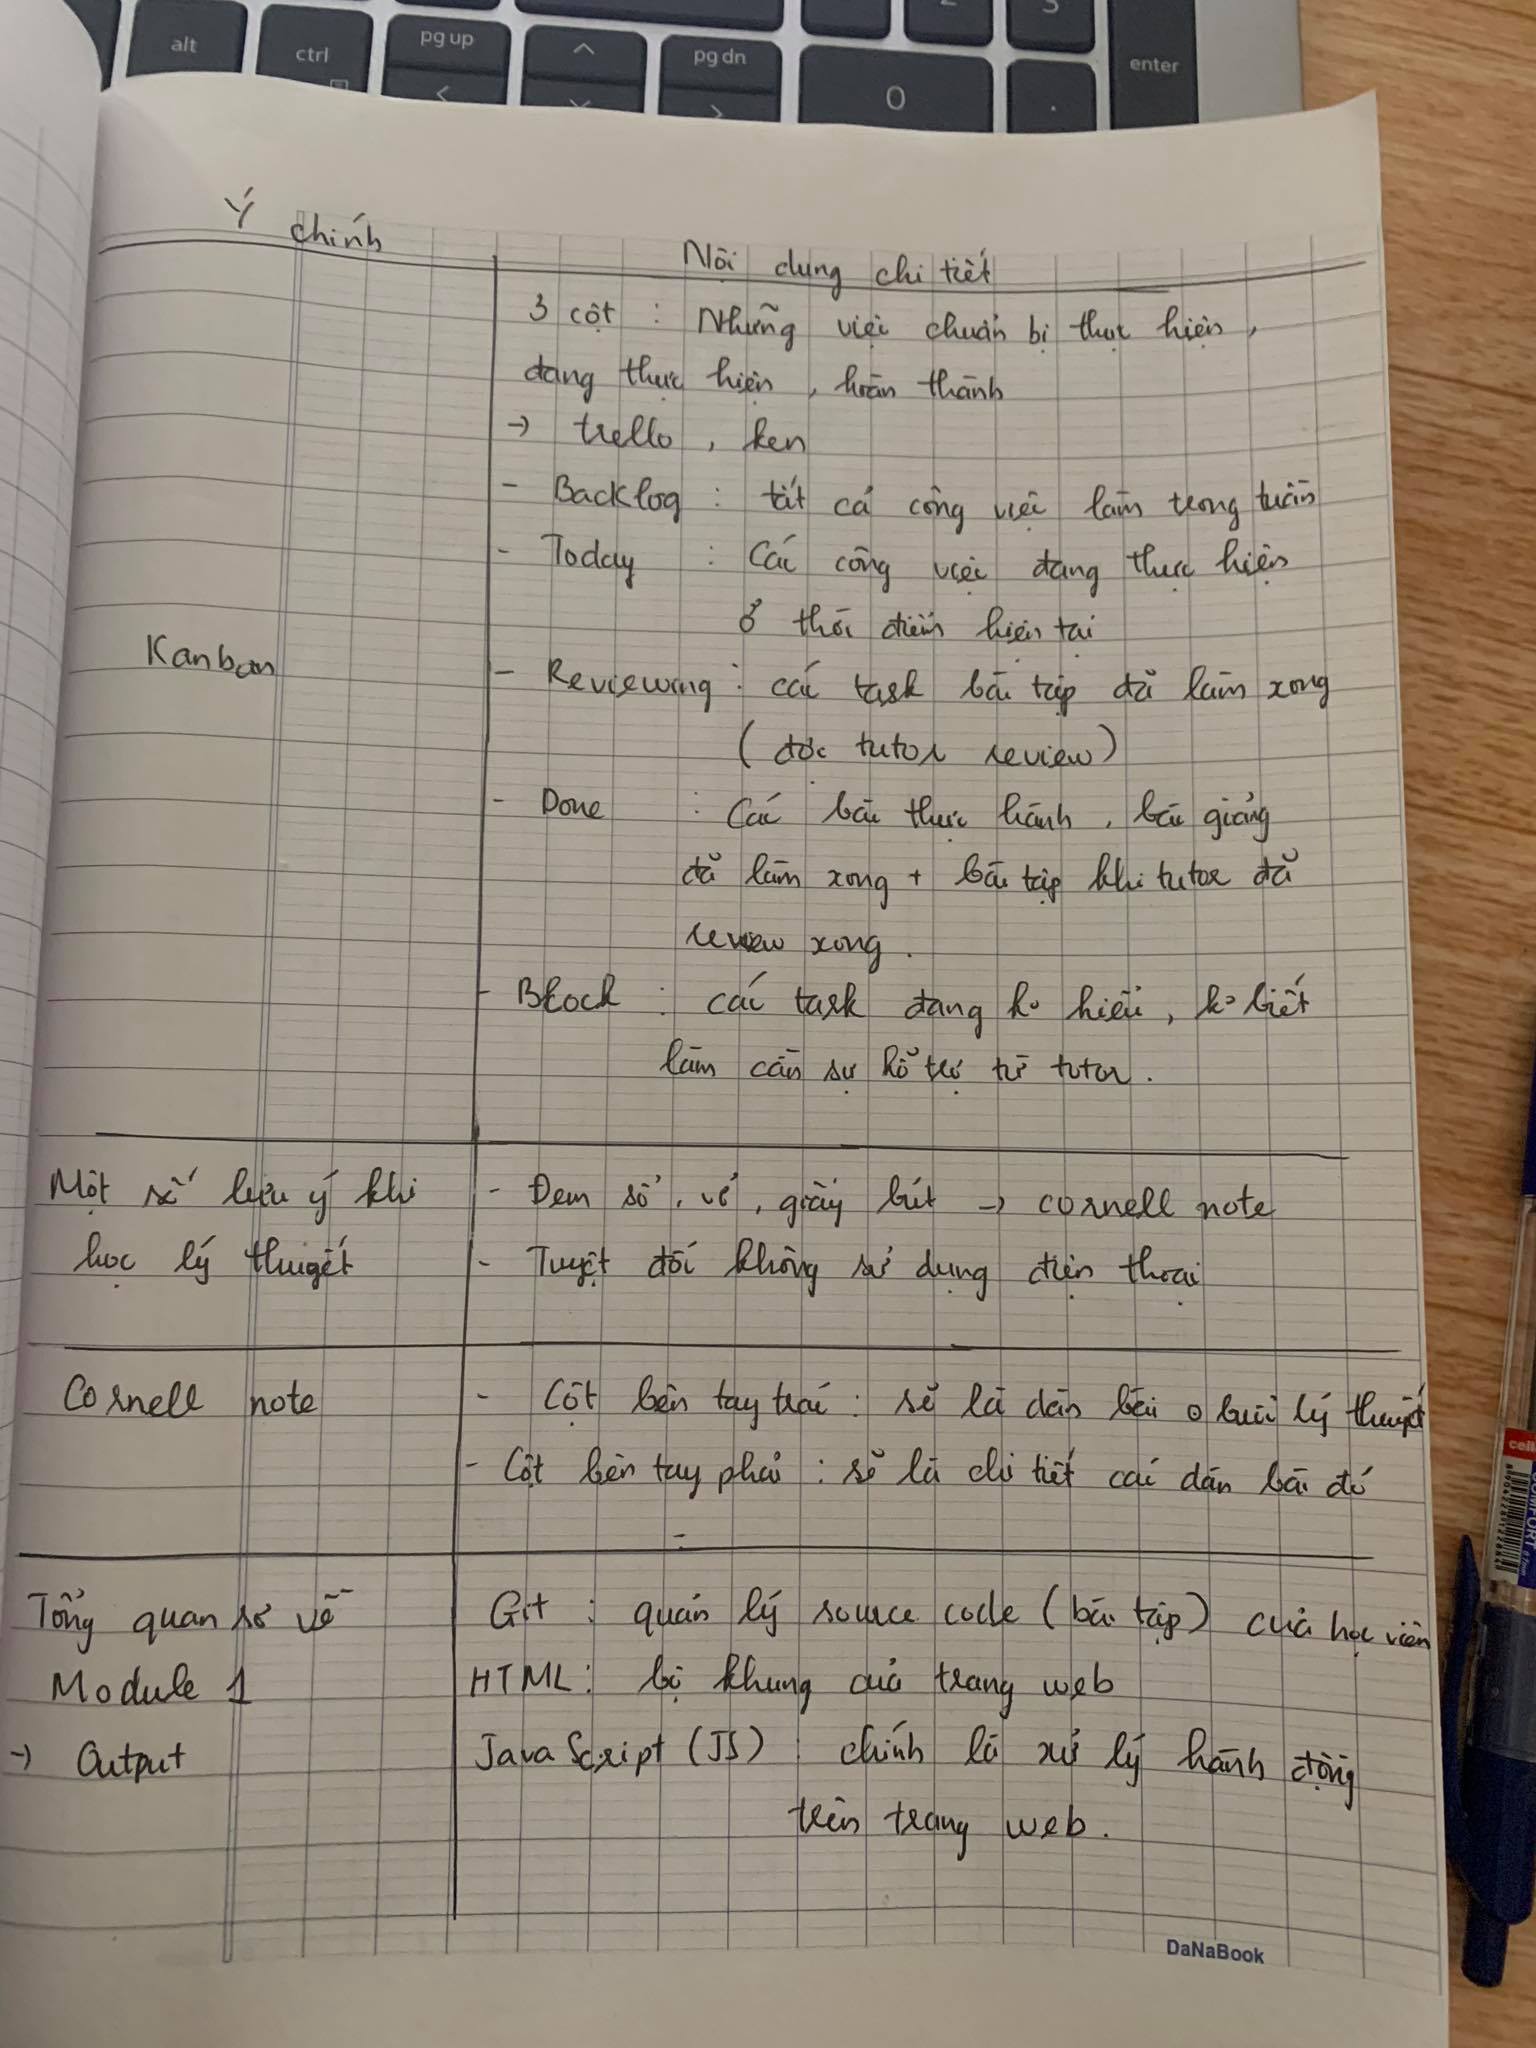 alt
ctrl
pg up
pg dn
0
.
enter
Ý chính
Nội dung chi tiết
3 cột : Những việc chuẩn bị thực hiện,
đang thực hiện, hoàn thành
→ trello, ken
- Backlog : tất cả công việc làm trong tuần
- Today : Các công việc đang thực hiện
ở thời điểm hiện tại
Kanban
- Reviewing : các task bài tập đã làm xong
(đợc tutor review)
- Done : Các bài thực hành, bài giảng
đã làm xong + bài tập khi tutor đã
review xong.
- Block : các task đang ko hiểu, ko biết
làm cần sự hỗ trợ từ tutor.
Một số lưu ý khi
học lý thuyết
- Đem sổ, vở, giấy bút → cornell note
- Tuyệt đối không sử dụng điện thoại
Cornell note
- Cột bên tay trái : sẽ là dàn bài buổi lý thuyết
- Cột bên tay phải : sẽ là chi tiết cái dàn bài đó
-
Tổng quan sơ về
Module 1
→ Output
Git : quản lý source code (bài tập) của học viên
HTML : bộ khung của trang web
JavaScript (JS) : chính là xử lý hành động
trên trang web.
DaNaBook